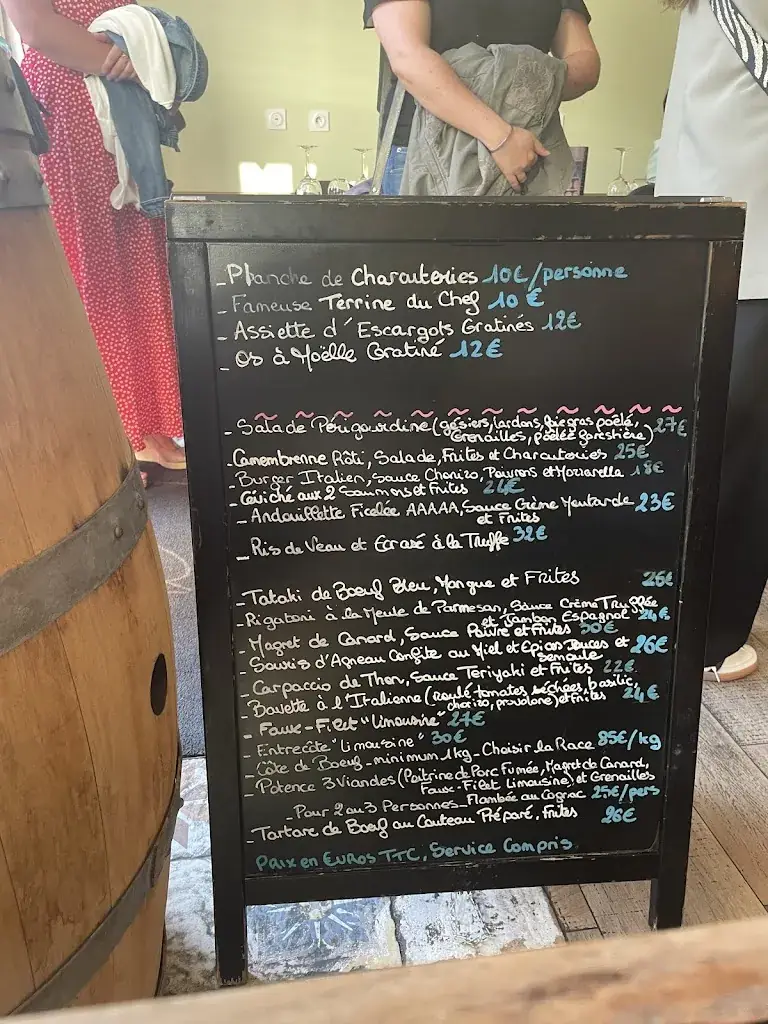 - Planche de Charcuteries 10€/personne
- Fameuse Terrine du Chef 10 €
- Assiette d'Escargots Gratinés 12€
- Os à Moëlle Gratiné 12€
- Salade Périgourdine (gésiers, lardons, foie gras poêlé,
Grenailles, poêlée forestière) 27€
- Camembrenne Rôti, Salade, Frites et Charcuteries 25€
- Burger Italien, Sauce Chorizo, Poivrons et Mozzarella 18€
- Céviché aux 2 Saumons et Frites 24€
- Andouillette Ficelée AAAAA, Sauce Crème Moutarde 23€
et Frites
- Ris de Veau et Ecrasé à la Truffe 32€
- Tataki de Boeuf Bleu, Mangue et Frites 26€
- Rigatoni à la Meule de Parmesan, Sauce Crème Truffée
et Jambon Espagnol 24€
- Magret de Canard, Sauce Poivre et Frites 30€
- Souris d'Agneau Confite au Miel et Epices Douces et 26€
semoule
- Carpaccio de Thon, Sauce Teriyaki et Frites 22€
- Bavette à l'Italienne (roulé tomates séchées, basilic,
chorizo, provolone) et frites 24€
- Faux-Filet "Limousine" 27€
- Entrecôte "Limousine" 30€
- Côte de Boeuf - minimum 1kg - Choisir la Race 85€/kg
- Potence 3 Viandes (Poitrine de Porc Fumée, Magret de Canard,
Faux-Filet Limousine) et Grenailles
- Pour 2 ou 3 Personnes - Flambée au Cognac 25€/pers
- Tartare de Boeuf au Couteau Préparé, Frites 26€
Prix en Euros TTC, Service Compris.